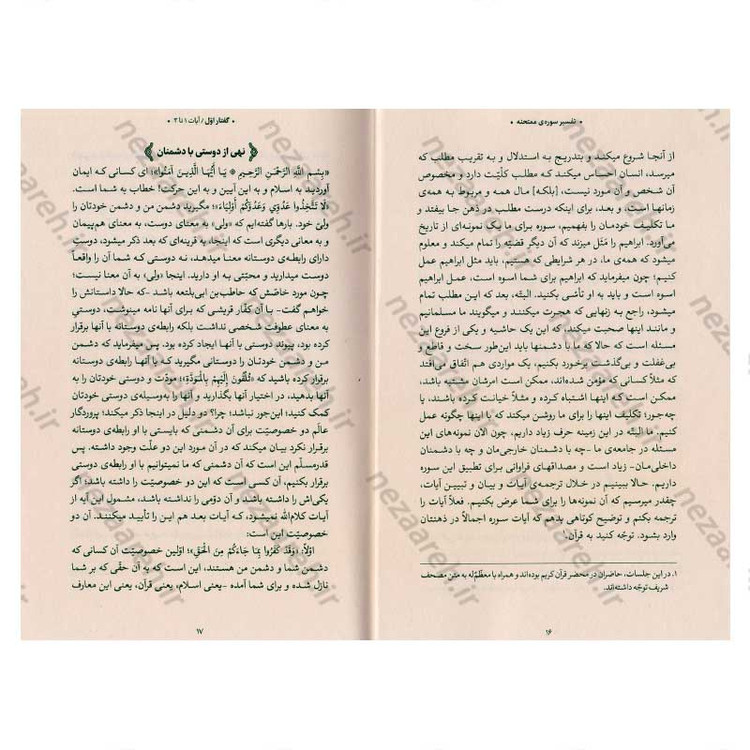 • تفسیر سوره‌ی ممتحنه •
از آنجا شروع میکند و بتدریج به استدلال و به تقریب مطلب که
میرسد، انسان احساس میکند که مطلب کلّیّت دارد و مخصوص
آن شخص و آن مورد نیست، [بلکه] مال همه و مربوط به همه‌ی
زمانها است؛ و بعد، برای اینکه درست مطلب در ذهن جا بیفتد و
ما تکلیف خودمان را بفهمیم، سوره برای ما یک نمونه‌ای از تاریخ
می‌آورد. ابراهیم را مَثَل میزند که آن دیگر قضیّه را تمام میکند و معلوم
میشود که همه‌ی ما، در هر شرایطی که هستیم، باید مثل ابراهیم عمل
کنیم؛ چون میفرماید که ابراهیم برای شما اسوه است، عمل ابراهیم
اسوه است و باید به او تأسّی بکنید. البتّه، بعد که این مطلب تمام
میشود، راجع به زنهایی که هجرت میکنند و میگویند ما مسلمانیم
و مانند اینها صحبت میکند، که این یک حاشیه و یکی از فروع این
مسئله است که حالا که ما با دشمنها باید این‌طور سخت و قاطع و
بی‌غفلت و بی‌گذشت برخورد بکنیم، یک مواردی هم اتّفاق می‌افتد
که مثلاً کسانی که مؤمن شده‌اند، ممکن است امرشان مشتبه باشد،
ممکن است که اینها اشتباه کرده و مثلاً خیانت کرده باشند،
چه‌جور؛ تکلیف اینها را برای ما روشن میکند که با اینها چگونه عمل
کنیم. ما البتّه در این زمینه حرف زیاد داریم، چون الان نمونه‌های این
مسئله در جامعه‌ی ما -چه با دشمنان خارجی‌مان و چه با دشمنان
داخلی‌مان- زیاد است و مصداقهای فراوانی برای تطبیق این سوره
داریم. حالا ببینیم در خلال ترجمه‌ی آیات و بیان و تبیین آیات،
چقدر میرسیم که آن نمونه‌ها را برای شما عرض بکنیم. فعلاً آیات را
ترجمه بکنم و توضیح کوتاهی بدهم که آیات سوره اجمالاً در ذهنتان
وارد بشود. توجّه کنید به قرآن.۱
۱. در این جلسات، حاضران در محضر قرآن کریم بوده‌اند و همراه با معظّمٌ‌له به متن مصحف
شریف توجّه داشته‌اند.
۱۶
• گفتار اوّل / آیات ۱ تا ۲ •
نهی از دوستی با دشمنان
«بِسمِ اللّهِ الرَّحمٰنِ الرَّحیمِ * یٰا اَیُّهَا الَّذینَ آمَنُوا»؛ ای کسانی که ایمان
آوردید به اسلام و به این آیین و به این حرکت! خطاب به شما است.
«لا تَتَّخِذُوا عَدُوّی وَعَدُوَّکُم اَولِیٰاءَ»؛ مگیرید دشمن من و دشمن خودتان را
ولیّ خود. بارها گفته‌ایم که «ولی» به معنای دوست، به معنای هم‌پیمان
و به معانی دیگری است که اینجا، به قرینه‌ای که بعد ذکر میشود، دوستِ
دارای رابطه‌ی دوستانه معنا میدهد، نه دوستی که شما آن را واقعاً
دوست میدارید و محبّتی به او دارید. اینجا «ولی» به آن معنا نیست؛
چون مورد خاصّش که حاطب‌بن ابی‌بلتعه باشد -که حالا داستانش را
خواهم گفت- بـا آن کفّار قریشی که برای آنها نامه مینوشت، دوستیِ
به معنای عطوفت شخصی نداشت بلکه رابطه‌ی دوستانه با آنها برقرار
کرده بود، پیوند دوستی با آنها ایجاد کرده بود. پس میفرماید که دشمن
من و دشمن خودتان را دوستانی مگیرید کـه بـا آنها رابطه‌ی دوستانه
برقرار کرده باشید که «تُلقونَ اِلَیهِم بِالمَوَدَّةِ»؛ مودّت و دوستی خودتان را به
آنها بدهید، در اختیار آنها بگذارید و آنها را به‌وسیله‌ی دوستی خودتان
کمک کنید؛ این‌جور نباشد؛ چرا؟ دو دلیل در اینجا ذکر میکند؛ پروردگار
عالَم دو خصوصیّت برای آن دشمنی که بایستی با او رابطه‌ی دوستانه
برقرار نکرد بیان میکند که در آن مورد این دو علّت وجود داشته. پس
قدرمسلّم این است که آن دشمنی که ما نمیتوانیم با او رابطه‌ی دوستی
برقرار بکنیم، آن کسی است که این دو خصوصیّت را داشته باشد؛ اگر
یکی‌اش را داشته باشد و آن دوّمی را نداشته باشد، مشمول این آیه از
آیات کلام‌الله نمیشود، که آیات بعد هم این را تأیید میکنند. آن دو
خصوصیّت این است:
اوّلاً: «وَقَد کَفَروا بِما جٰاءَکُم مِنَ الحَقِّ»؛ اوّلین خصوصیّت آن کسانی که
دشمن شما و دشمن من هستند، این است که به آن حقّی که بر شما
نازل شده و برای شما آمده -یعنی اسلام، یعنی قرآن، یعنی این معارف
۱۷
nezaareh.ir